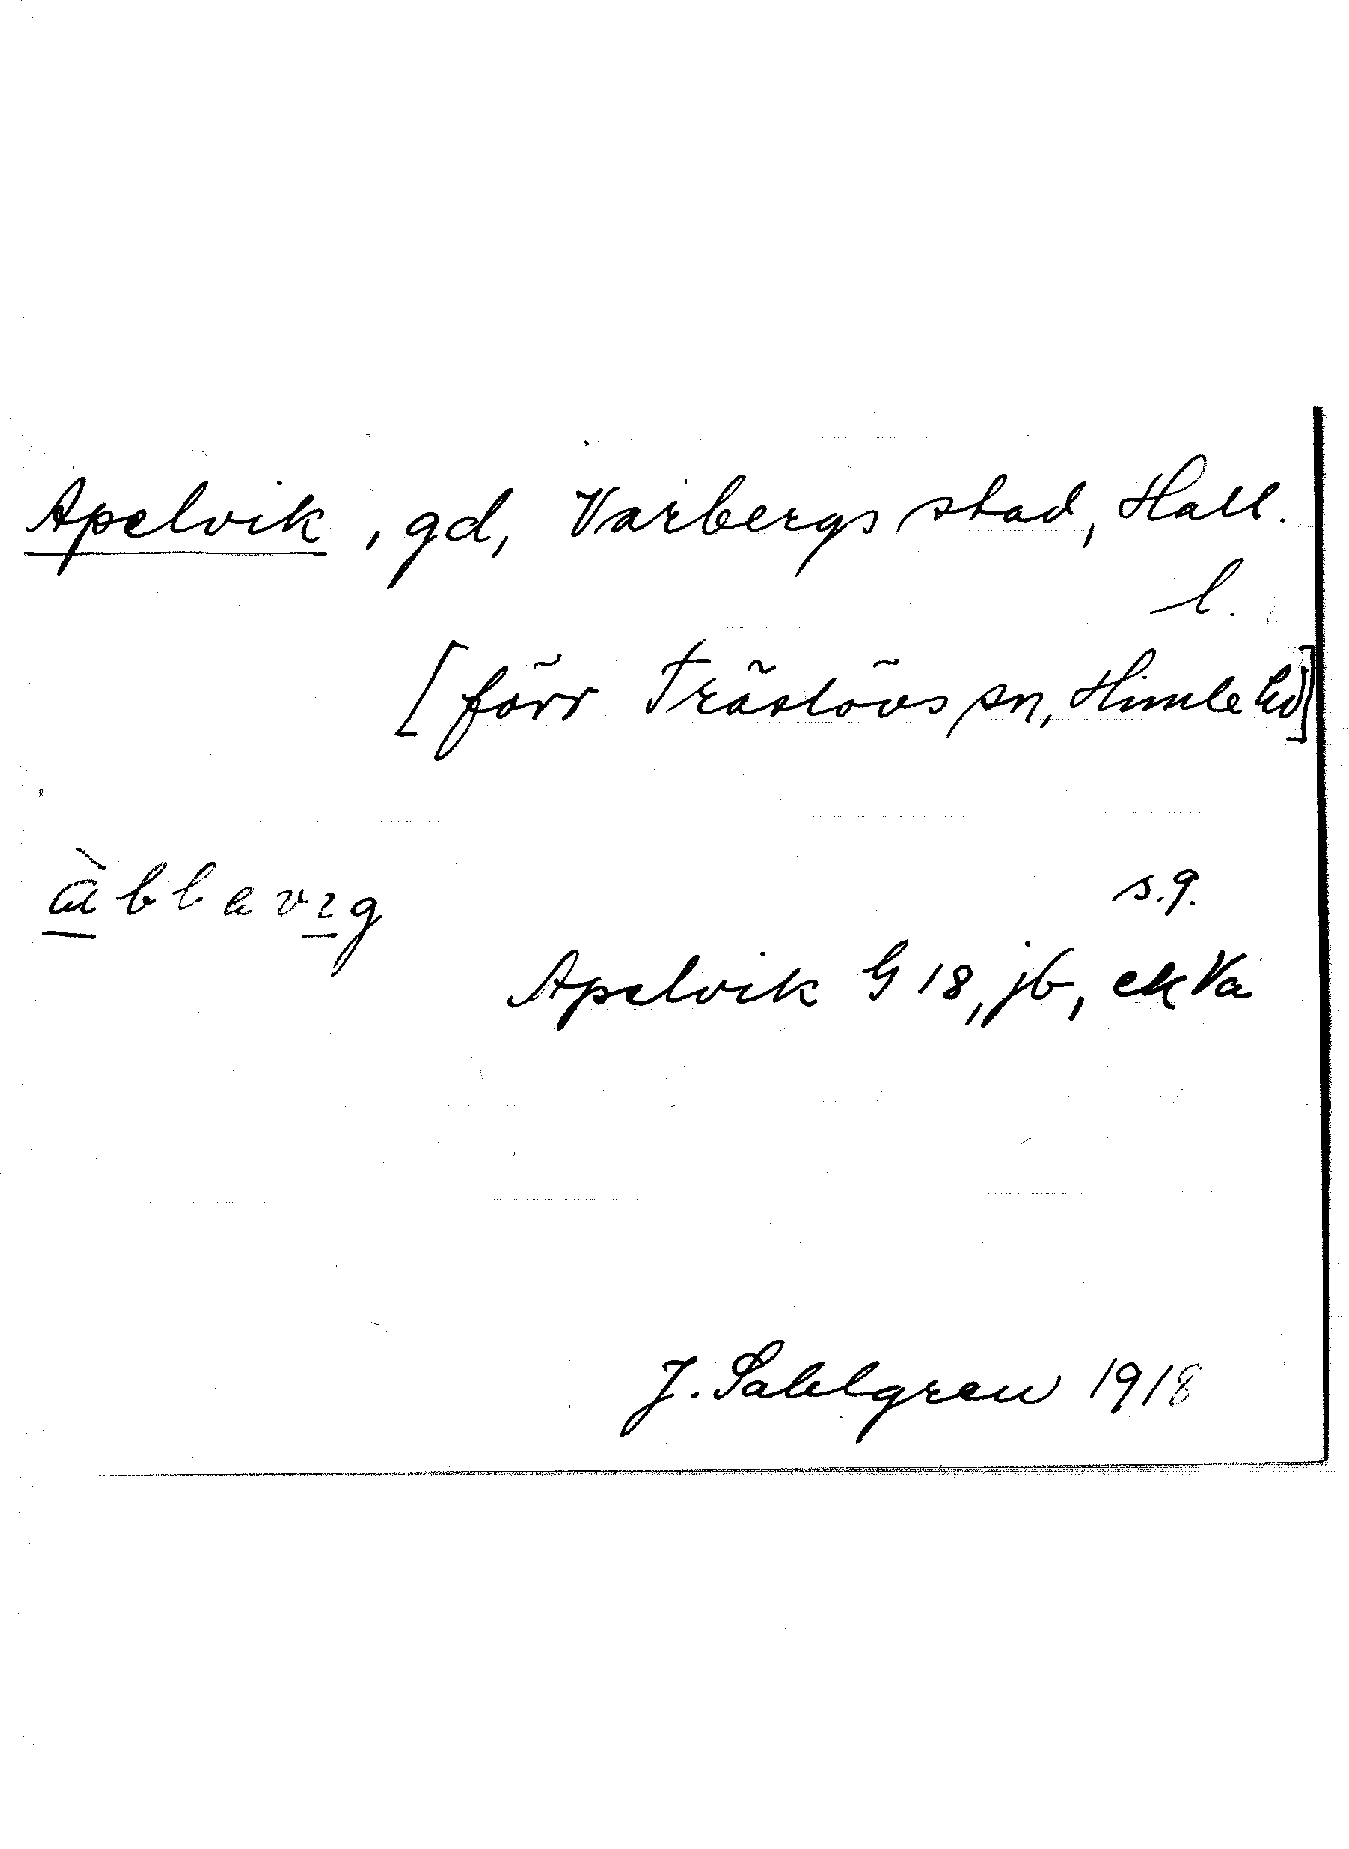 Apelvik, gd, Varbergs stad, Hall.
l.
[förr Träslövs sn, Himle hd]
àbbavıg
s.g.
Apelvik G 18, jb, ekKa
J. Sahlgren 1918